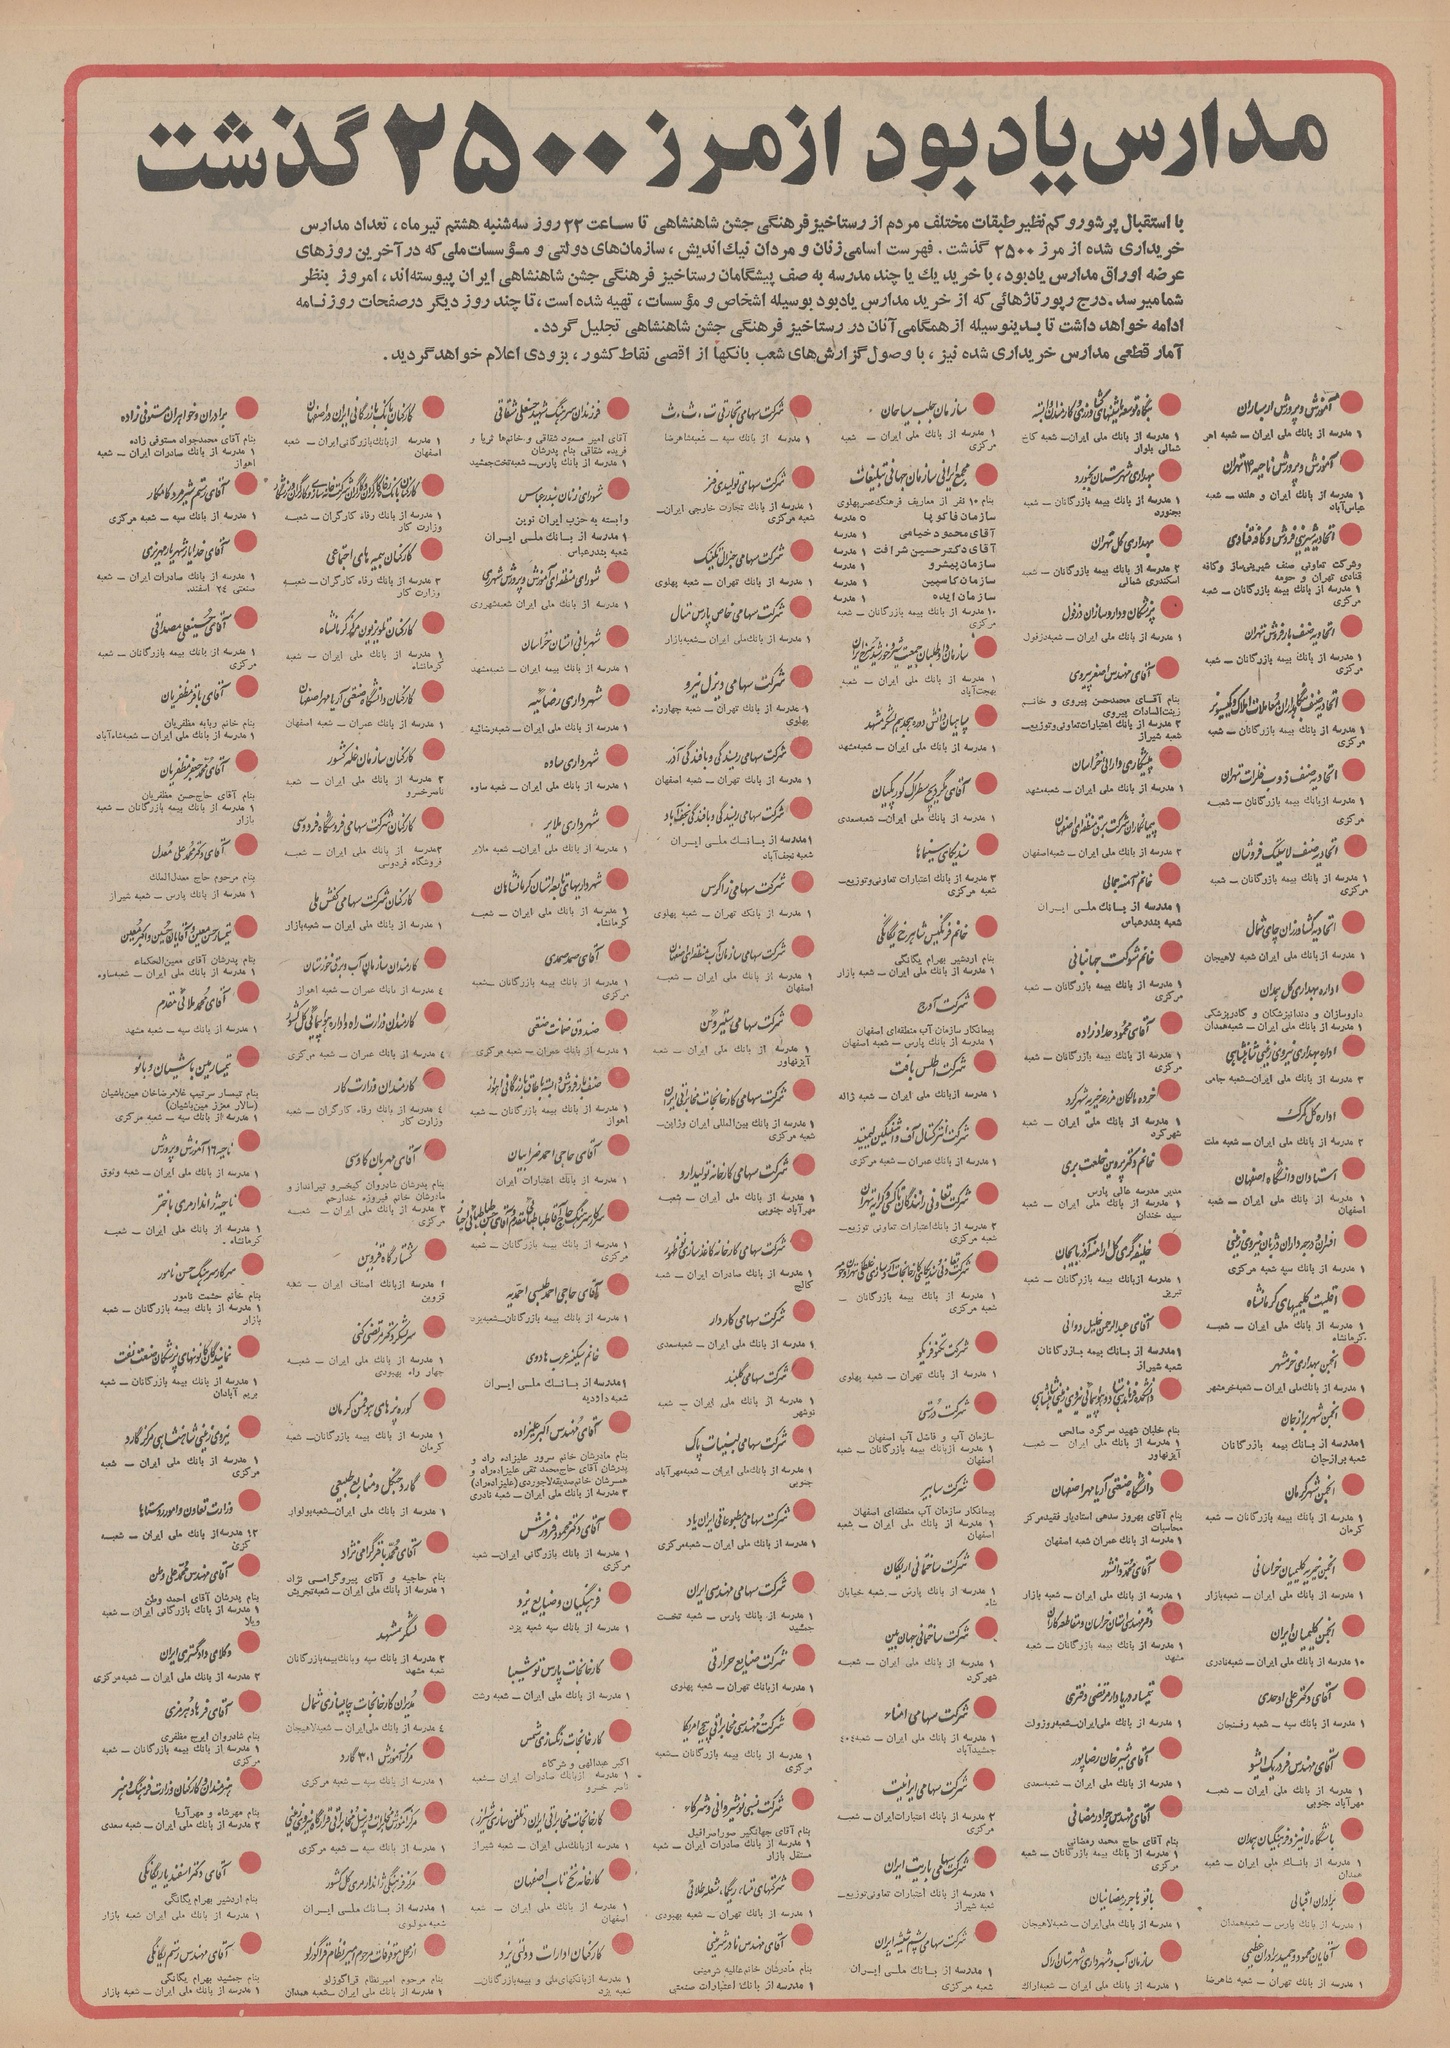 مدارس یادبود از مرز ۲۵۰۰ گذشت
با استقبال پر شور و کم نظیر طبقات مختلف مردم از رستاخیز فرهنگی جشن شاهنشاهی تا ساعت ۲۲ روز سه‌شنبه هشتم تیر ماه، تعداد مدارس
خریداری شده از مرز ۲۵۰۰ گذشت. فهرست اسامی زنان و مردان نیك اندیش، سازمان‌های دولتی و مؤسسات ملی که در آخرین روزهای
عرضه اوراق مدارس یادبود، با خرید یك یا چند مدرسه به صف پیشگامان رستاخیز فرهنگی جشن شاهنشاهی ایران پیوسته‌اند، امروز بنظر
شما میرسد. درج رپورتاژهائی که از خرید مدارس یادبود بوسیله اشخاص و مؤسسات، تهیه شده است، تا چند روز دیگر در صفحات روزنامه
ادامه خواهد داشت تا بدینوسیله از همگامی آنان در رستاخیز فرهنگی جشن شاهنشاهی تجلیل گردد.
آمار قطعی مدارس خریداری شده نیز، با وصول گزارش‌های شعب بانکها از اقصی نقاط کشور، بزودی اعلام خواهد گردید.
آموزش و پرورش ارسباران
۱ مدرسه از بانك ملی ایران – شعبه اهر
آموزش و پرورش ناحیه ۱۴ تهران
۱ مدرسه از بانك ایران و هلند – شعبه
عباس‌آباد
وشرکت تعاونی صنف شیرینی‌ساز وکافه
قنادی تهران و حومه
۱ مدرسه از بانك بیمه بازرگانان – شعبه
مرکزی
۱ مدرسه از بانك بیمه بازرگانان – شعبه
مرکزی
۱ مدرسه از بانك بیمه بازرگانان – شعبه
مرکزی
اتحادیه صنف ذوب فلزات تهران
۱ مدرسه ازبانك بیمه بازرگانان – شعبه
مرکزی
اتحادیه صنف لاستیک فروشان
۱ مدرسه از بانك بیمه بازرگانان – شعبه
مرکزی
اتحادیه کشاورزان چای شمال
۱ مدرسه از بانك ملی ایران شعبه لاهیجان
اداره بهداری کل همدان
داروسازان و دندانپزشکان و کادرپزشکی
۱ مدرسه از بانك ملی ایران – شعبه‌همدان
اداره بهداری نیروی زمینی شاهنشاهی
۳ مدرسه از بانك ملی ایران–شعبه جامی
اداره کل گمرک
۲ مدرسه از بانك بیمه ایران – شعبه ملت
استادان دانشگاه اصفهان
۱ مدرسه از بانك ملی ایران – شعبه
اصفهان
افسران و درجه‌داران دژبان نیروی زمینی
۱ مدرسه از بانك سپه شعبه مرکزی
اقلیت کلیمیهای کرمانشاه
۱ مدرسه از بانك ملی ایران – شعبه
کرمانشاه
انجمن بهداری خرمشهر
۱ مدرسه از بانك‌ملی ایران – شعبه‌خرمشهر
انجمن شهر برازجان
۱مدرسه از بانك بیمه بازرگانان
شعبه برازجان
انجمن شهر کرمان
۱ مدرسه از بانك بیمه بازرگانان – شعبه
کرمان
انجمن خیریه کلیمیان خراسانی
۱ مدرسه از بانك ملی ایران – شعبه‌بازار
انجمن کلیمیان ایران
۱۰ مدرسه از بانك ملی ایران – شعبه‌نادری
آقای دکتر علی اوحدی
۱ مدرسه از بانك سپه – شعبه رفسنجان
۱ مدرسه از بانك ملی ایران – شعبه
مهرآباد جنوبی
باشگاه لاینز و فرهنگیان همدان
۱ مدرسه از بانك ملی ایران – شعبه
همدان
برادران اقبالی
۱ مدرسه از بانك پارس – شعبه‌همدان
۱ مدرسه از بانك تهران – شعبه شاهرضا
۱ مدرسه از بانك ملی ایران– شعبه کاخ
شمالی بلوار
بهداری شهرستان بجنورد
۱ مدرسه از بانك بیمه بازرگانان – شعبه
بجنورد
بهداری کل تهران
۲ مدرسه از بانك بیمه بازرگانان – شعبه
اسکندری شمالی
پزشکان و داروسازان دزفول
۱ مدرسه از بانك ملی ایران – شعبه‌دزفول
آقای مهندس اصغر پیروی
بنام آقای محمدحسن پیروی و خانم
زینت‌السادات پیروی
۲ مدرسه از بانك اعتبارات تعاونی‌وتوزیع–
شعبه شیراز
پیشکاری دارائی خراسان
۱ مدرسه از بانك ملی ایران – شعبه‌مشهد
پیمانکاران شرکت برق منطقه‌ای اصفهان
۲ مدرسه از بانك ملی ایران – شعبه‌اصفهان
خانم آمنه جمالی
۱ مدرسه از بانك ملی ایران
شعبه بندرعباس
خانم شوکت جهانبانی
۱ مدرسه از بانك بیمه بازرگانان – شعبه
مرکزی
آقای محمود حداد زاده
۱ مدرسه از بانك بیمه بازرگانان – شعبه
مرکزی
۱ مدرسه از بانك ملی ایران – شعبه
شهرکرد
خانم دکتر پروین خلعت بری
مدیر مدرسه عالی پارس
۱ مدرسه از بانك ملی ایران – شعبه
سید خندان
خلیفه گری کل ارامنه آذربایجان
۱ مدرسه ازبانك بیمه بازرگانان – شعبه
تبریز
آقای عبدالرحمن خلیل دوانی
۱مدرسه از بانك بیمه بازرگانان
شعبه شیراز
بنام خلبان شهید سرگرد صالحی
۱ مدرسه از بانك ملی ایران – شعبه
آیزنهاور
دانشگاه صنعتی آریامهر اصفهان
بنام آقای بهروز سدهی استادیار فقیدمرکز
محاسبات
۱ مدرسه از بانك عمران شعبه اصفهان
آقای محمد دانشور
۱ مدرسه از بانك ملی ایران – شعبه بازار
دفتر مهندسی استان خراسان و مقاطعه‌کاران
۱ مدرسه از بانك بیمه بازرگانان – شعبه
مشهد
تیمسار دریادار مرتضی دفتری
۱ مدرسه از بانك ملی‌ایران–شعبه‌روزولت
آقای شیرخان رضاپور
۱ مدرسه از بانك ملی ایران – شعبه‌سعدی
آقای مهندس جواد رمضانی
بنام آقای حاج محمد رمضانی
۱ مدرسه از بانك بیمه بازرگانان – شعبه
مرکزی
بانو هاجر رمضانیان
۱ مدرسه از بانك ملی‌ایران – شعبه‌لاهیجان
سازمان آب و شهرداری شهرستان اراک
۱ مدرسه از بانك ملی ایران – شعبه‌اراك
سازمان جلب سیاحان
۱ مدرسه از بانك ملی ایران – شعبه
مرکزی
مجمع ایرانی سازمان جهانی تبلیغات
بنام ۱۰ نفر از معاریف فرهنگ‌عصرپهلوی
سازمان فاکوپا ۵ مدرسه
آقای محمود خیامی ۱ مدرسه
آقای دکتر حسین شرافت ۱ مدرسه
سازمان پیشرو ۱ مدرسه
سازمان کاسپین ۱ مدرسه
سازمان ایده ۱ مدرسه
۱۰ مدرسه از بانك بیمه بازرگانان – شعبه
مرکزی
سازمان داوطلبان جمعیت شیر و خورشید سرخ ایران
۱ مدرسه از بانك ملی ایران – شعبه
بهجت‌آباد
سپاهیان دانش دوره هجدهم لشگر مشهد
۱ مدرسه از بانك ملی ایران – شعبه‌مشهد
۱ مدرسه از بانك ملی ایران– شعبه‌سعدی
سندیکای سینماها
۳ مدرسه از بانك اعتبارات تعاونی‌وتوزیع–
شعبه مرکزی
خانم فرنگیس شاهرخ یگانگی
بنام اردشیر بهرام یگانگی
۱ مدرسه از بانك ملی ایران – شعبه بازار
شرکت آورج
پیمانکار سازمان آب منطقه‌ای اصفهان
۱ مدرسه از بانك پارس – شعبه اصفهان
شرکت اطلس بافت
۱ مدرسه ازبانك ملی ایران – شعبه ژاله
۱ مدرسه از بانك عمران – شعبه مرکزی
شرکت تعاونی رانندگان تاکسی و کرایه تهران
۲ مدرسه از بانك‌اعتبارات تعاونی توزیع–
شعبه مرکزی
۱ مدرسه از بانك بیمه بازرگانان –
شعبه مرکزی
شرکت تکنوفریکو
۱ مدرسه از بانك تهران – شعبه پهلوی
سازمان آب و فاضل آب اصفهان
۱ مدرسه ازبانك بیمه بازرگانان – شعبه
اصفهان
شرکت سابیر
پیمانکار سازمان آب منطقه‌ای اصفهان
۱ مدرسه از بانك ملی ایران – شعبه
اصفهان
شرکت ساختمانی اریکان
۱ مدرسه از بانك پارس – شعبه خیابان
شاه
شرکت ساختمانی جهان بین
۱ مدرسه از بانك ملی ایران – شعبه
شهرکرد
شرکت سهامی امناء
۱ مدرسه از بانك ملی ایران – شعبه۴۰۴
جمشیدآباد
شرکت سهامی ایرانیت
۲ مدرسه از بانك اعتبارات‌ایران – شعبه
مرکزی
شرکت سهامی باریت ایران
۱ مدرسه از بانك اعتبارات تعاونی‌توزیع–
شعبه شیراز
شرکت سهامی پشم شیشه ایران
۱ مدرسه از بانك ملی ایران
شعبه مرکزی
شرکت سهامی تجارتی ت. ث. ث
۱ مدرسه از بانك سپه – شعبه‌شاهرضا
۱ مدرسه از بانك تجارت خارجی ایران–
شعبه مرکزی
شرکت سهامی جنرال تکنیک
۱ مدرسه از بانك تهران – شعبه پهلوی
شرکت سهامی خاص پارس متال
۱ مدرسه از بانك‌ملی ایران– شعبه‌بازار
شرکت سهامی دیزل نیرو
۱ مدرسه از بانك تهران– شعبه چهارراه
پهلوی
شرکت سهامی ریسندگی و بافندگی آذر
۱ مدرسه از بانك تهران – شعبه اصفهان
شرکت سهامی ریسندگی و بافندگی نجف‌آباد
۱مدرسه از بانك ملی ایران
شعبه نجف‌آباد
شرکت سهامی زاگرس
۱ مدرسه از بانك تهران – شعبه پهلوی
شرکت سهامی سازمان آب منطقه‌ای اصفهان
۱ مدرسه از بانك ملی ایران – شعبه
اصفهان
۱ مدرسه از بانك ملی ایران – شعبه
آیزنهاور
شرکت سهامی کارخانجات مخابراتی ایران
۱ مدرسه از بانك بین‌المللی ایران وژاپن–
شعبه مرکزی
شرکت سهامی کارخانه تولیدارو
۱ مدرسه از بانك ملی ایران – شعبه
مهرآباد جنوبی
۱ مدرسه از بانك صادرات ایران – شعبه
کالج
شرکت سهامی کاردار
۱ مدرسه از بانك ملی ایران – شعبه‌سعدی
شرکت سهامی گلبند
۱ مدرسه از بانك ملی ایران – شعبه
نوشهر
شرکت سهامی لبنیات پاک
۱ مدرسه از بانك‌ملی ایران – شعبه‌مهرآباد
جنوبی
شرکت سهامی مطبوعاتی ایران یاد
۱ مدرسه از بانك ملی ایران – شعبه‌مرکزی
شرکت سهامی مهندسی ایران
۱ مدرسه از بانك پارس – شعبه تخت
جمشید
شرکت صنایع حرارتی
۱ مدرسه ازبانك تهران – شعبه پهلوی
شرکت مهندسی مخابراتی پیج امریکا
۱ مدرسه از بانك بیمه بازرگانان –شعبه
مرکزی
شرکت نسبی نوشیروانی و شرکاء
بنام آقای جهانگیر صوراصرافیل
۱ مدرسه از بانك صادرات ایران – شعبه
مستقل بازار
شرکتهای مینا، ریکا، شعله طلائی
۱ مدرسه از بانك تهران – شعبه بهبودی
آقای مهندس نادر شرمینی
بنام مادرشان خانم‌عالیه شرمینی
۱ مدرسه از بانك اعتبارات صنعتی
فرزندان سرهنگ شهید حسنعلی شقاقی
آقای امیر مسعود شقاقی و خانم‌ها ثریا و
فریده شقاقی بنام پدرشان
۱ مدرسه از بانك پارس– شعبه‌تخت‌جمشید
شورای زنان بندرعباس
وابسته به حزب ایران نوین
۱ مدرسه از بانك ملی ایران
شعبه بندرعباس
شورای منطقه‌ای آموزش و پرورش شهرری
۱ مدرسه از بانك ملی ایران شعبه‌شهرری
شهربانی استان خراسان
۱ مدرسه از بانك بیمه ایران – شعبه‌مشهد
شهرداری رضائیه
۱ مدرسه از بانك ملی ایران –شعبه‌رضائیه
شهرداری ساوه
۱ مدرسه از بانك ملی ایران – شعبه ساوه
شهرداری ملایر
۱ مدرسه از بانك ملی ایران– شعبه ملایر
شهرداریهای تابعه استان کرمانشاهان
۱ مدرسه از بانك ملی ایران – شعبه
کرمانشاه
آقای صمد صمدی
۱ مدرسه از بانك بیمه بازرگانان –شعبه
مرکزی
صندوق ضمانت صنعتی
۱ مدرسه از بانك عمران– شعبه مرکزی
صنف بارفروش وابسته باطاق بازرگانی اهواز
۱ مدرسه از بانك بیمه بازرگانان – شعبه
اهواز
آقای حاجی احمد ضرابیان
۱ مدرسه از بانك اعتبارات ایران
۱ مدرسه از بانك بیمه بازرگانان – شعبه
مرکزی
آقای حاجی احمد طبسی احمدیه
۱ مدرسه از بانك بیمه بازرگانان–شعبه‌یزد
خانم سکینه عرب هادوی
۱مدرسه از بانك ملی ایران
شعبه داودیه
آقای مهندس اکبر علیزاده
بنام مادرشان خانم سرور علیزاده راد و
پدرشان آقای حاج‌محمد تقی علیزاده‌راد و
همسرشان خانم‌صدیقه‌لاجوردی (علیزاده‌راد)
۳ مدرسه از بانك ملی ایران – شعبه نادری
آقای دکتر محمود فروزش
۱ مدرسه از بانك بازرگانی ایران– شعبه
مرکزی
فرهنگیان و صنایع یزد
۱ مدرسه از بانك سپه شعبه یزد
کارخانجات پارس توشیبا
۱ مدرسه از بانك ملی ایران – شعبه رشت
کارخانجات رنگسازی شمس
اکبر عبدالهی و شرکاء
۱ مدرسه ازبانك صادرات ایران –شعبه
ناصر خسرو
کارخانجات مخابراتی ایران (تلفن سازی شیراز)
۱ مدرسه ازبانك‌ملی ایران – شعبه شیراز
کارخانه نخ تاب اصفهان
۱ مدرسه از بانك ملی ایران – شعبه
اصفهان
کارکنان ادارات دولتی یزد
۱ مدرسه ازبانکهای‌ملی و بیمه‌بازرگانان–
شعبه یزد
کارکنان بانک بازرگانی ایران در اصفهان
۱ مدرسه ازبانك‌بازرگانی‌ایران – شعبه
اصفهان
۱ مدرسه از بانك رفاه کارگران– شعبه
وزارت کار
کارکنان بیمه های اجتماعی
۳ مدرسه از بانك رفاه کارگران– شعبه
وزارت کار
کارکنان تلویزیون مرکز کرمانشاه
۱ مدرسه از بانك ملی ایران – شعبه
کرمانشاه
کارکنان دانشگاه صنعتی آریامهر اصفهان
۱ مدرسه از بانك عمران – شعبه اصفهان
کارکنان سازمان غله کشور
۲ مدرسه از بانك بیمه ایران – شعبه
ناصرخسرو
کارکنان شرکت سهامی فروشگاه فردوسی
۲مدرسه از بانك ملی ایران – شعبه
فروشگاه فردوسی
کارکنان شرکت سهامی کفش ملی
۱ مدرسه از بانك ملی ایران – شعبه‌بازار
کارمندان سازمان آب و برق خوزستان
۴ مدرسه از بانك عمران – شعبه اهواز
کارمندان وزارت راه و اداره هواپیمائی کل کشور
۴ مدرسه از بانك عمران – شعبه مرکزی
کارمندان وزارت کار
۴ مدرسه از بانك رفاه کارگران – شعبه
وزارت کار
آقای مهربان کاوسی
بنام پدرشان شادروان کیخسرو تیرانداز و
مادرشان خانم فیروزه خدارحم
۲ مدرسه از بانك ملی ایران – شعبه
مرکزی
کشتارگاه قزوین
۱ مدرسه ازبانك اصناف ایران – شعبه
قزوین
سرلشگر دکتر مرتضی کنی
۱ مدرسه از بانك ملی ایران – شعبه
چهار راه بهبودی
کوره پزهای هوفمن کرمان
۱ مدرسه از بانك بیمه بازرگانان– شعبه
کرمان
گارد جنگل و منابع طبیعی
۱ مدرسه از بانك ملی ایران –شعبه‌بولوار
آقای محمدباقر گرامی نژاد
بنام حاجیه و آقای پیروگرامی نژاد
۱ مدرسه از بانك ملی ایران – شعبه‌تجریش
لشگر مشهد
۲ مدرسه از بانك سپه وبانك‌بیمه‌بازرگانان
شعبه مشهد
مدیران کارخانجات چایسازی شمال
۴ مدرسه از بانك ملی‌ایران – شعبه‌لاهیجان
مرکز آموزش ۳۰۱ گارد
۱ مدرسه از بانك سپه – شعبه مرکزی
۱ مدرسه از بانك سپه – شعبه مرکزی
مرکز فرهنگی ژاندارمری کل کشور
۱ مدرسه از بانك ملی ایران
شعبه مولوی
از محل موقوفات مرحوم امیرنظام قراگوزلو
بنام مرحوم امیرنظام قراگوزلو
۱ مدرسه از بانك ملی ایران –شعبه همدان
برادران و خواهران مستوفی زاده
بنام آقای محمدجواد مستوفی زاده
۱ مدرسه از بانك صادرات ایران – شعبه
اهواز
۱ مدرسه از بانك سپه – شعبه مرکزی
۱ مدرسه از بانك صادرات ایران – شعبه
صنعتی ۲۴ اسفند
آقای حسینعلی مصداقی
۱ مدرسه از بانك بیمه بازرگانان – شعبه
مرکزی
آقای باقر مظفریان
بنام خانم ربابه مظفریان
۱ مدرسه از بانك ملی ایران – شعبه‌شاه‌آباد
آقای محمدجعفر مظفریان
بنام آقای حاج‌حسن مظفریان
۱ مدرسه از بانك بیمه بازرگانان – شعبه
بازار
آقای دکتر محمدعلی معدل
بنام مرحوم حاج معدل‌الملك
۱ مدرسه از بانك پارس – شعبه شیراز
بنام پدرشان آقای معین‌الحکماء
۱ مدرسه از بانك ملی ایران – شعبه‌ساوه
آقای محمد ملائی مقدم
۱ مدرسه از بانك سپه – شعبه مشهد
تیمسار مین باشیان و بانو
بنام تیمسار سرتیپ غلامرضاخان مین‌باشیان
(سالار معزز مین‌باشیان)
۱ مدرسه از بانك سپه – شعبه مرکزی
ناحیه ۱۶ آموزش و پرورش
۱ مدرسه از بانك ملی ایران – شعبه وثوق
ناحیه ژاندارمری باختر
۱ مدرسه از بانك ملی ایران – شعبه
کرمانشاه.
سرکار سرهنگ حسن نامور
بنام خانم حشمت نامور
۱ مدرسه از بانك بیمه بازرگانان – شعبه
بازار
نمایندگان کانونهای پزشکان صنعت نفت
۱ مدرسه از بانك بیمه بازرگانان – شعبه
بریم آبادان
نیروی زمینی شاهنشاهی مرکز گارد
۱ مدرسه از بانك ملی ایران – شعبه
مرکزی
وزارت تعاون و امور روستاها
۱۲ مدرسه از بانك ملی ایران – شعبه
آقای مهندس محمدعلی وطن
بنام پدرشان آقای احمد وطن
۱ مدرسه از بانك بازرگانی ایران – شعبه
ویلا
وکلای دادگستری ایران
۲ مدرسه از بانك ملی ایران – شعبه‌مرکزی
آقای فرهاد هرمزی
بنام شادروان ایرج مظفری
۱ مدرسه از بانك بیمه بازرگانان – شعبه
مرکزی
هنرمندان و کارکنان وزارت فرهنگ و هنر
بنام مهرشاه و مهرآریا
۲ مدرسه از بانك ملی ایران – شعبه سعدی
آقای دکتر اسفندیار یگانگی
بنام اردشیر بهرام یگانگی
۱ مدرسه از بانك ملی ایران شعبه بازار
آقای مهندس رستم یگانگی
بنام جمشید بهرام یگانگی
۱ مدرسه از بانك ملی ایران – شعبه بازار